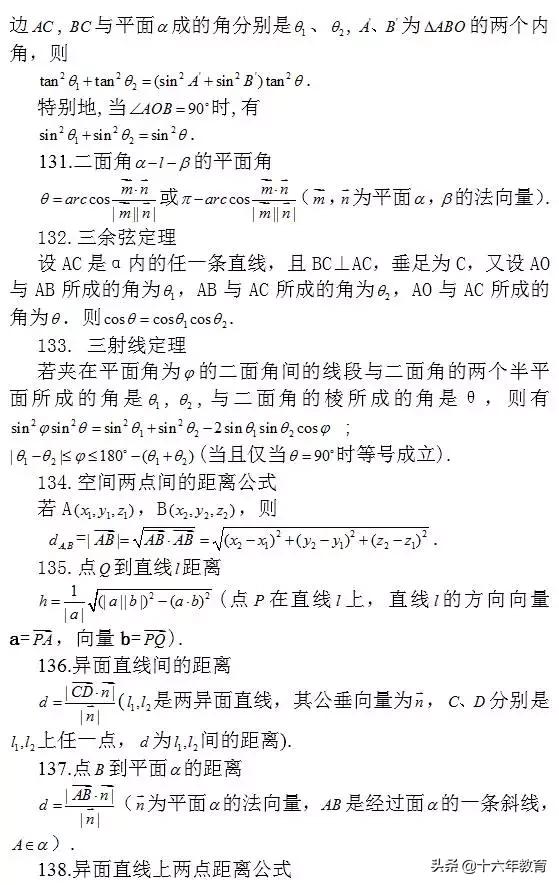 边 AC, BC 与平面 α 成的角分别是 θ₁、θ₂, A′、B′ 为 ΔABO 的两个内
角，则
tan² θ₁+tan² θ₂=(sin² A′+sin² B′)tan² θ.
特别地,当∠AOB=90°时,有
sin² θ₁+sin² θ₂=sin² θ.
131.二面角 α-l-β 的平面角
θ=arc cos (m⃗·n⃗)/(|m⃗||n⃗|) 或 π-arc cos (m⃗·n⃗)/(|m⃗||n⃗|) (m⃗,n⃗ 为平面 α, β 的法向量).
132.三余弦定理
设 AC 是 α 内的任一条直线，且 BC⊥AC，垂足为 C，又设 AO
与 AB 所成的角为 θ₁，AB 与 AC 所成的角为 θ₂，AO 与 AC 所成的
角为 θ．则 cosθ=cosθ₁cosθ₂.
133. 三射线定理
若夹在平面角为 φ 的二面角间的线段与二面角的两个半平
面所成的角是 θ₁, θ₂,与二面角的棱所成的角是 θ，则有
sin² φ sin² θ=sin² θ₁+sin² θ₂-2sinθ₁sinθ₂cosφ ;
|θ₁-θ₂|≤φ≤180°-(θ₁+θ₂)(当且仅当 θ=90°时等号成立).
134.空间两点间的距离公式
若 A(x₁,y₁,z₁)，B(x₂,y₂,z₂)，则
d_{A,B}=|AB⃗|=√(AB⃗·AB⃗)=√((x₂-x₁)²+(y₂-y₁)²+(z₂-z₁)²).
135.点 Q 到直线 l 距离
h=1/|a| √((|a||b|)²-(a·b)²) (点 P 在直线 l 上，直线 l 的方向向量
a=PA⃗，向量 b=PQ⃗).
136.异面直线间的距离
d=|CD⃗·n⃗|/|n⃗| (l₁,l₂ 是两异面直线，其公垂向量为 n⃗，C、D 分别是
l₁,l₂ 上任一点，d 为 l₁,l₂ 间的距离).
137.点 B 到平面 α 的距离
d=|AB⃗·n⃗|/|n⃗| (n⃗ 为平面 α 的法向量，AB 是经过面 α 的一条斜线，
A∈α).
138.异面直线上两点距离公式
头条 @十六年教育